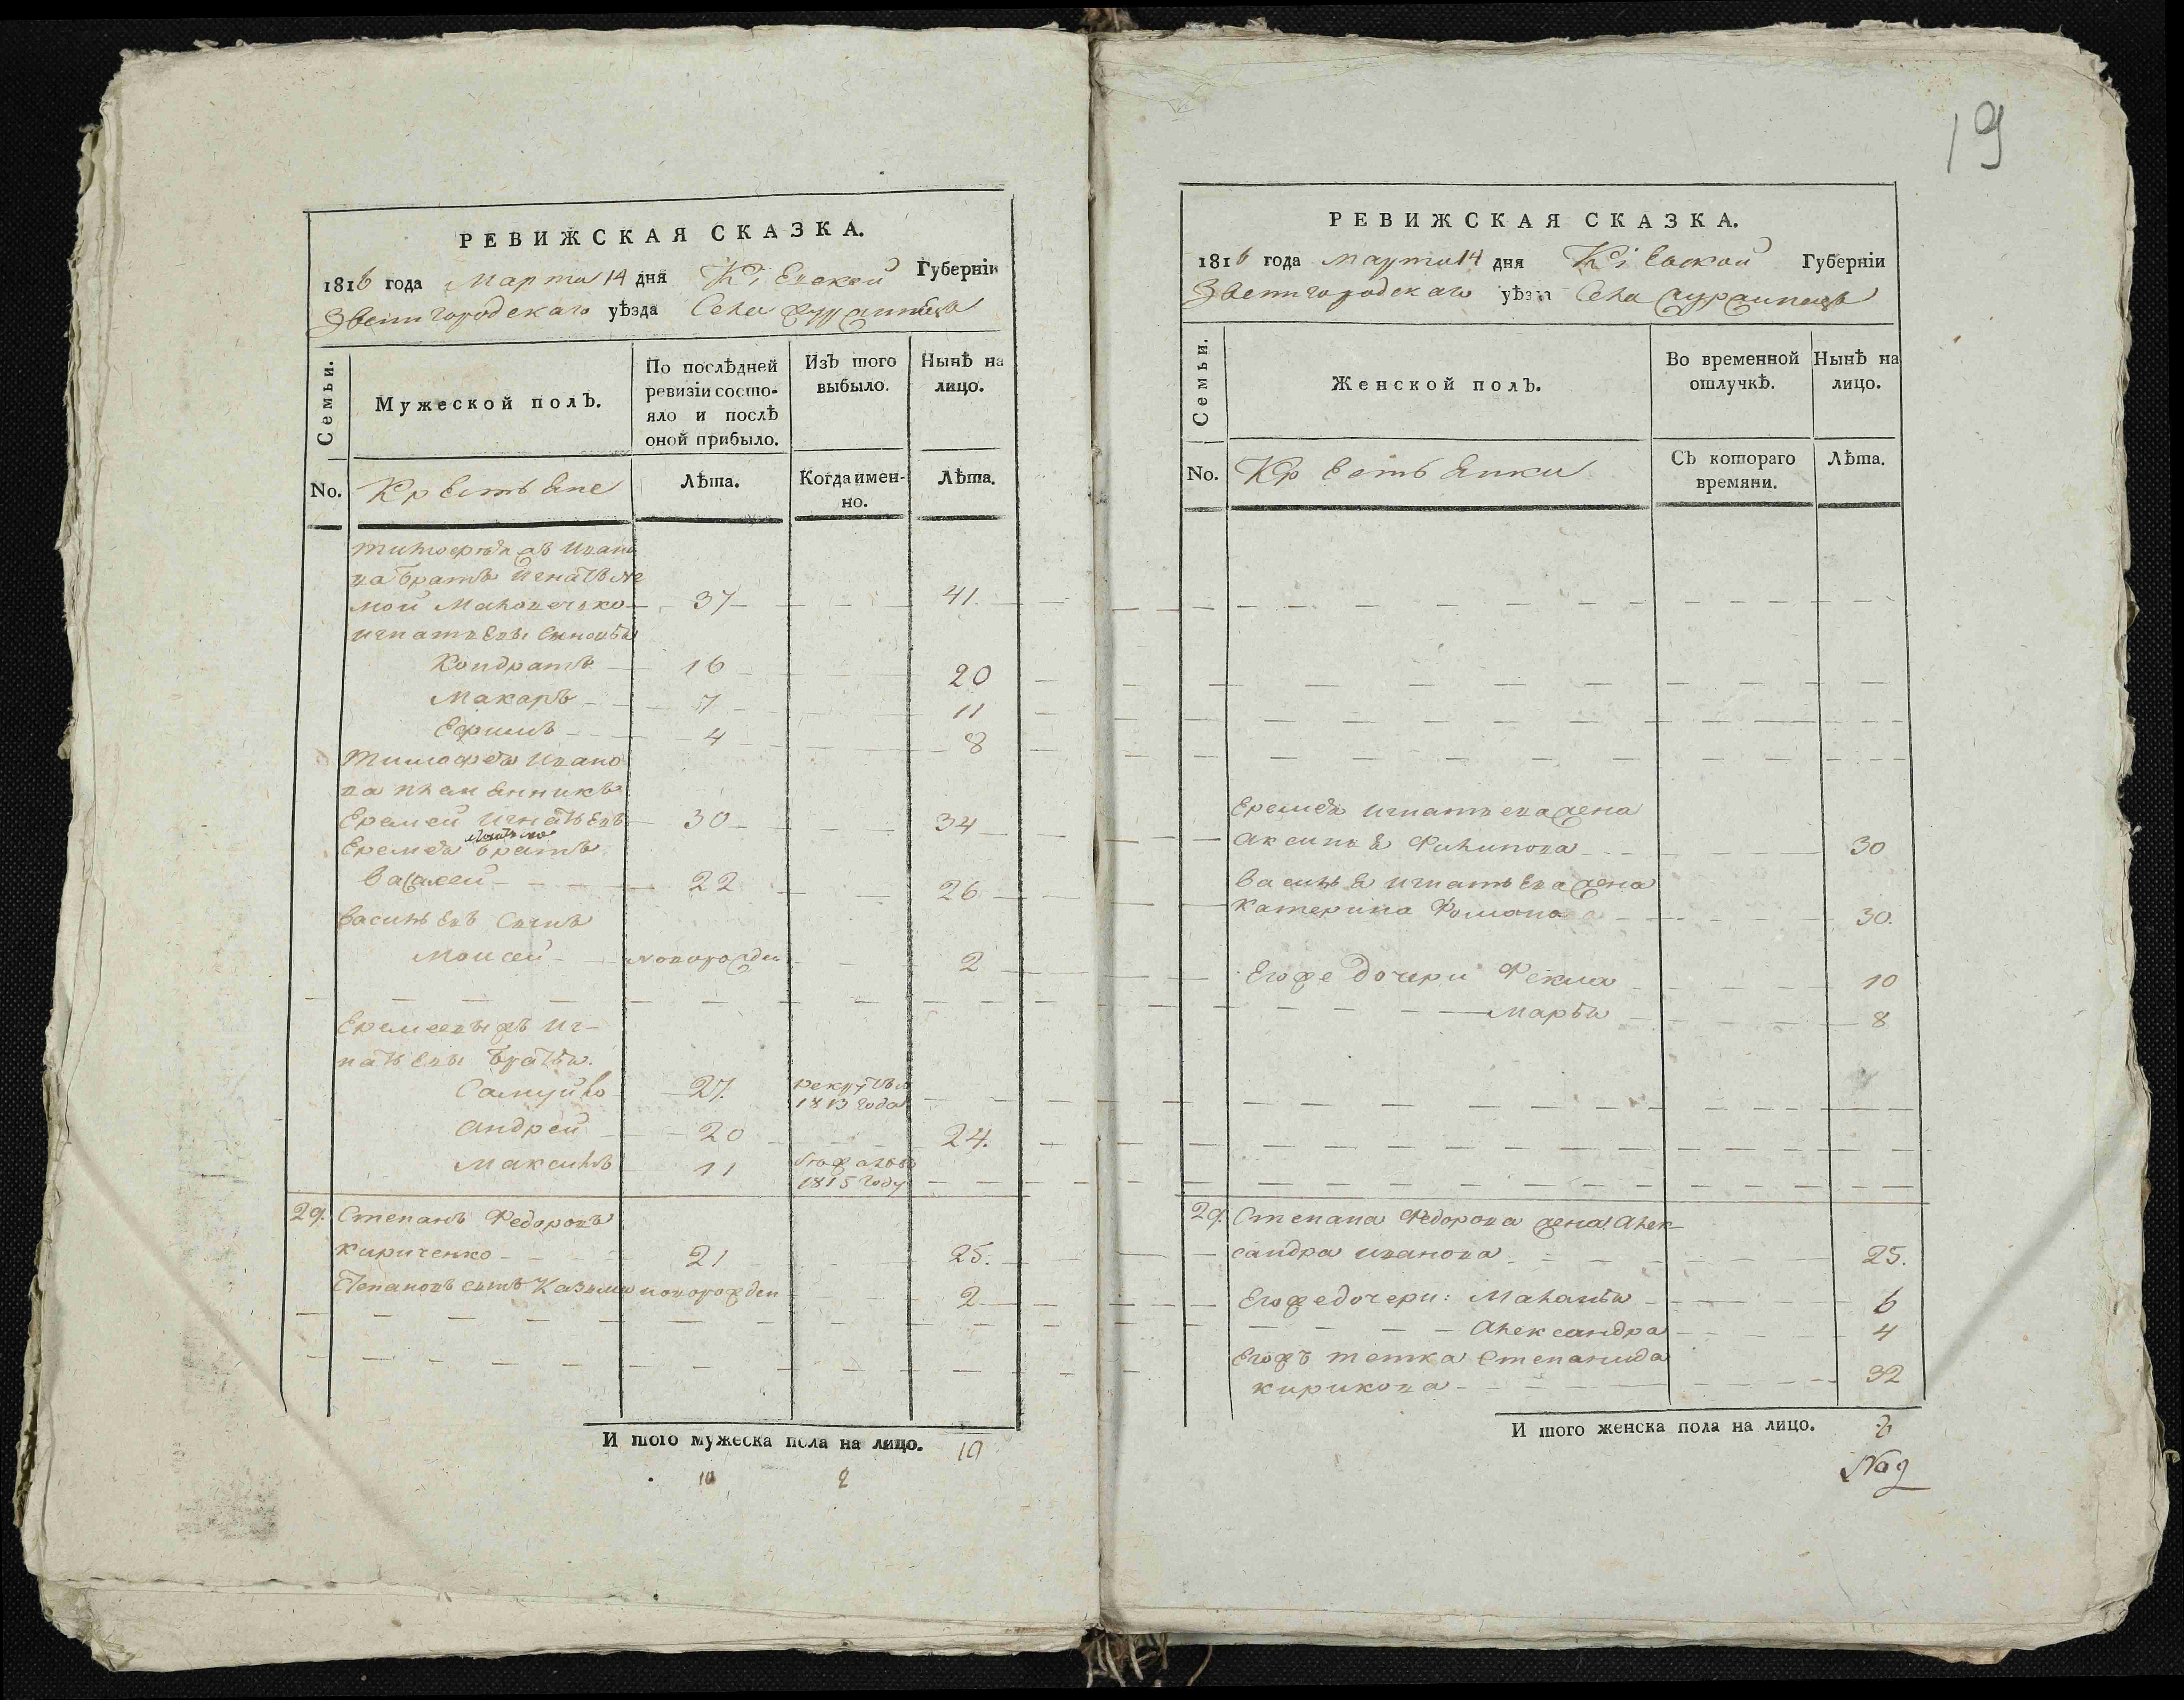 19
РЕВИЖСКАЯ СКАЗКА.
1816 года Марта 14 дня Кіевской Губерніи
Звенигородскаго уѣзда Села
Семьи.
Мужеской полъ.
По послѣдней ревизіи состояло и послѣ оной прибыло.
Изъ того выбыло.
Нынѣ на лицо.
No. Крестьяне
Лѣта.
Когда именно.
Лѣта.
Тимофея Ивано
ва братъ Игнатъ
37 41.
Игнатьевы сыновья
Кондратъ 16 20
Макаръ 7 11
Ефимъ 4 8
Тимофея Ивано
ва племянникъ
Еремей Игнатьевъ 30 34
Еремея братъ
22 26
Васильевъ сынъ
Моисей новорожден 2
Еремеевы жъ Иг-
натьевы братья.
Самуйло 27. рекрутъ
1813 года
Андрей 20 24.
Максимъ 11
1815 году
29. Степанъ Федоровъ
Кириченко 21 25.
Степановъ сынъ Казьма новорожден 2
И того мужеска пола на лицо. 10
10 2
РЕВИЖСКАЯ СКАЗКА.
1816 года Марта 14 дня Кіевской Губерніи
Звенигородскаго уѣзда Села
Семьи.
Женской полъ.
Во временной отлучкѣ.
Нынѣ на лицо.
No. Крестьянки
Съ котораго времяни.
Лѣта.
Еремея Игнатьева жена
Аксинья Филипова 30
Василья Игнатьева жена
Катерина Романова 30.
Его же дочери Фекла 10
Марья 8
29. Степана Федорова жена Алек-
сандра Иванова 25.
Его же дочери: Маланья 6
Александра 4
Его жъ тетка Степанида
Кирикова 32
И того женска пола на лицо. 8